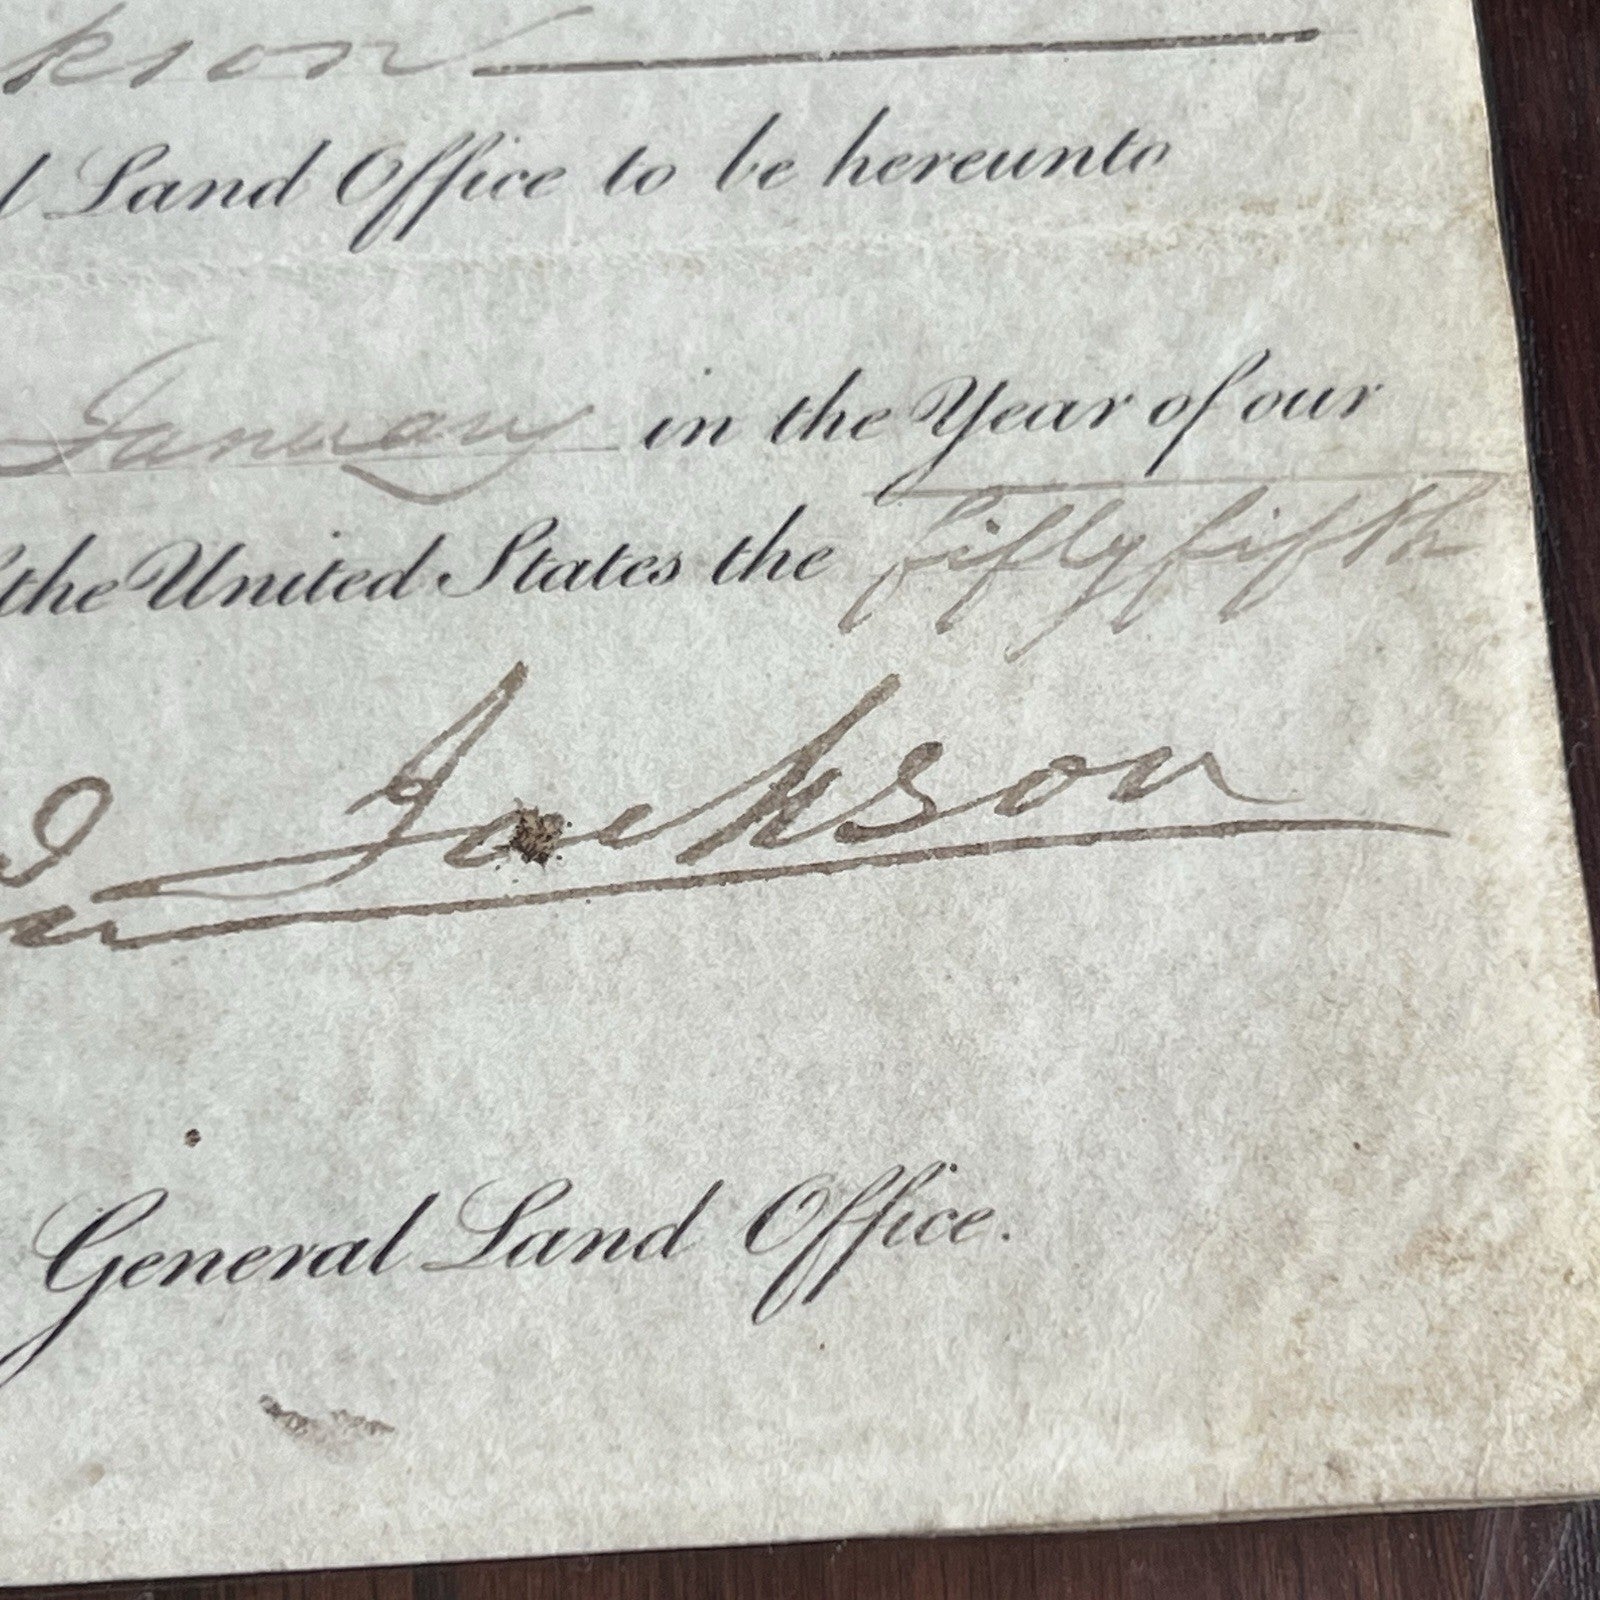 kson
l Land Office to be hereunto
January in the Year of our
the United States the fifty fifth
Jackson
General Land Office.